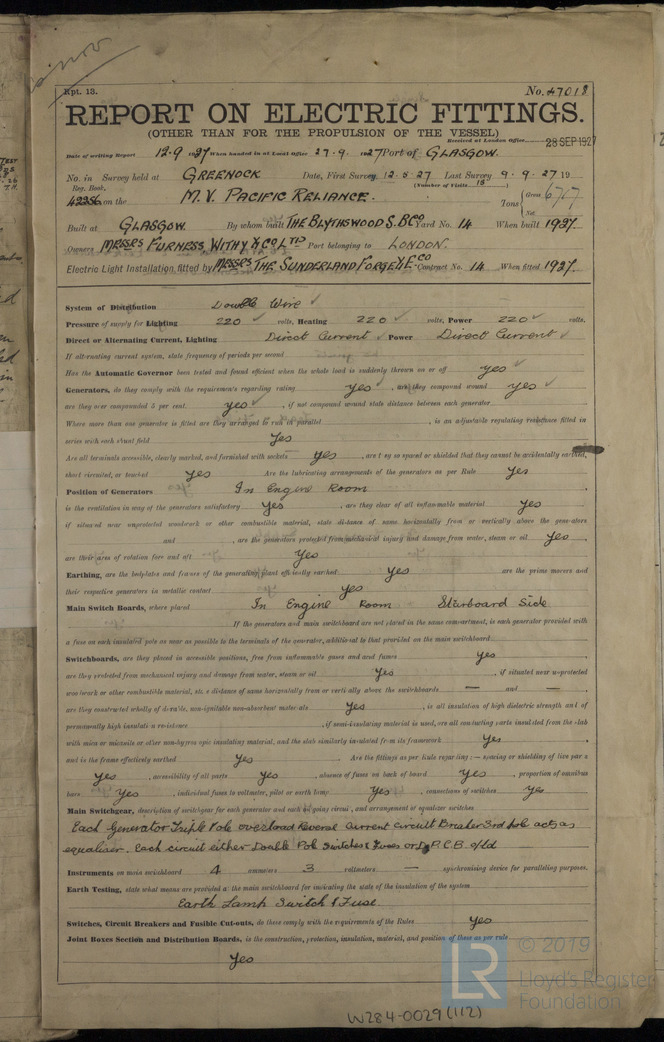 Rpt. 13.
No. 47018
REPORT ON ELECTRIC FITTINGS.
(OTHER THAN FOR THE PROPULSION OF THE VESSEL)
Received at London Office 28 SEP 1927
Date of writing Report 12.9.1927 When handed in at Local Office 27.9.1927 Port of GLASGOW.
No. in Survey held at GREENOCK Date, First Survey 12.5.27 Last Survey 9.9.27 19
Reg. Book. (Number of Visits 15)
42256 on the M.V. PACIFIC RELIANCE. Tons { Gross 6717
Net
Built at GLASGOW. By whom built THE BLYTHSWOOD S.B Co Yard No. 14 When built 1927.
Owners MESSRS FURNESS WITHY & CO LTD Port belonging to LONDON.
Electric Light Installation fitted by MESSRS THE SUNDERLAND FORGE & E. CO Contract No. 14 When fitted 1927.
System of Distribution Double Wire ✓
Pressure of supply for Lighting 220 ✓ volts, Heating 220 ✓ volts, Power 220 ✓ volts.
Direct or Alternating Current, Lighting Direct Current ✓ Power Direct Current ✓
If alternating current system, state frequency of periods per second
Has the Automatic Governor been tested and found efficient when the whole load is suddenly thrown on or off yes ✓
Generators, do they comply with the requirements regarding rating yes ✓, are they compound wound yes ✓
are they over compounded 5 per cent. yes ✓, if not compound wound state distance between each generator
Where more than one generator is fitted are they arranged to run in parallel , is an adjustable regulating resistance fitted in
series with each shunt field yes
Are all terminals accessible, clearly marked, and furnished with sockets yes, are they so spaced or shielded that they cannot be accidentally earthed,
short circuited, or touched yes Are the lubricating arrangements of the generators as per Rule yes
Position of Generators In Engine Room
is the ventilation in way of the generators satisfactory yes, are they clear of all inflammable material yes
if situated near unprotected woodwork or other combustible material, state distance of same horizontally from or vertically above the generators
and , are the generators protected from mechanical injury and damage from water, steam or oil yes
are their axes of rotation fore and aft yes
Earthing, are the bedplates and frames of the generating plant efficiently earthed yes are the prime movers and
their respective generators in metallic contact yes
Main Switch Boards, where placed In Engine Room Starboard Side
If the generators and main switchboard are not placed in the same compartment, is each generator provided with
a fuse on each insulated pole as near as possible to the terminals of the generator, additional to that provided on the main switchboard
Switchboards, are they placed in accessible positions, free from inflammable gases and acid fumes yes
are they protected from mechanical injury and damage from water, steam or oil yes, if situated near unprotected
woodwork or other combustible material, state distance of same horizontally from or vertically above the switchboards — and —
are they constructed wholly of durable, non-ignitable non-absorbent materials yes, is all insulation of high dielectric strength and of
permanently high insulation resistance , if semi-insulating material is used, are all conducting parts insulated from the slab
with mica or micanite or other non-hygroscopic insulating material, and the slab similarly insulated from its framework yes
and is the frame effectively earthed yes Are the fittings as per Rule regarding:— spacing or shielding of live parts
yes, accessibility of all parts yes, absence of fuses on back of board yes, proportion of omnibus
bars yes, individual fuses to voltmeter, pilot or earth lamp yes, connections of switches yes
Main Switchgear, description of switchgear for each generator and each outgoing circuit, and arrangement of equalizer switches
Each Generator Triple Pole overload Reverse Current circuit Breaker 3rd pole acts as
equaliser. Each circuit either Double Pole Switches & Fuses or D.P.C.B. o/ld
Instruments on main switchboard 4 ammeters 3 voltmeters — synchronising device for paralleling purposes.
Earth Testing, state what means are provided at the main switchboard for indicating the state of the insulation of the system
Earth Lamp Switch & Fuse.
Switches, Circuit Breakers and Fusible Cut-outs, do these comply with the requirements of the Rules yes
Joint Boxes Section and Distribution Boards, is the construction, protection, insulation, material, and position of these as per rule
yes
© 2019
LR
Lloyd's Register
Foundation
W284-0029 (1/2)